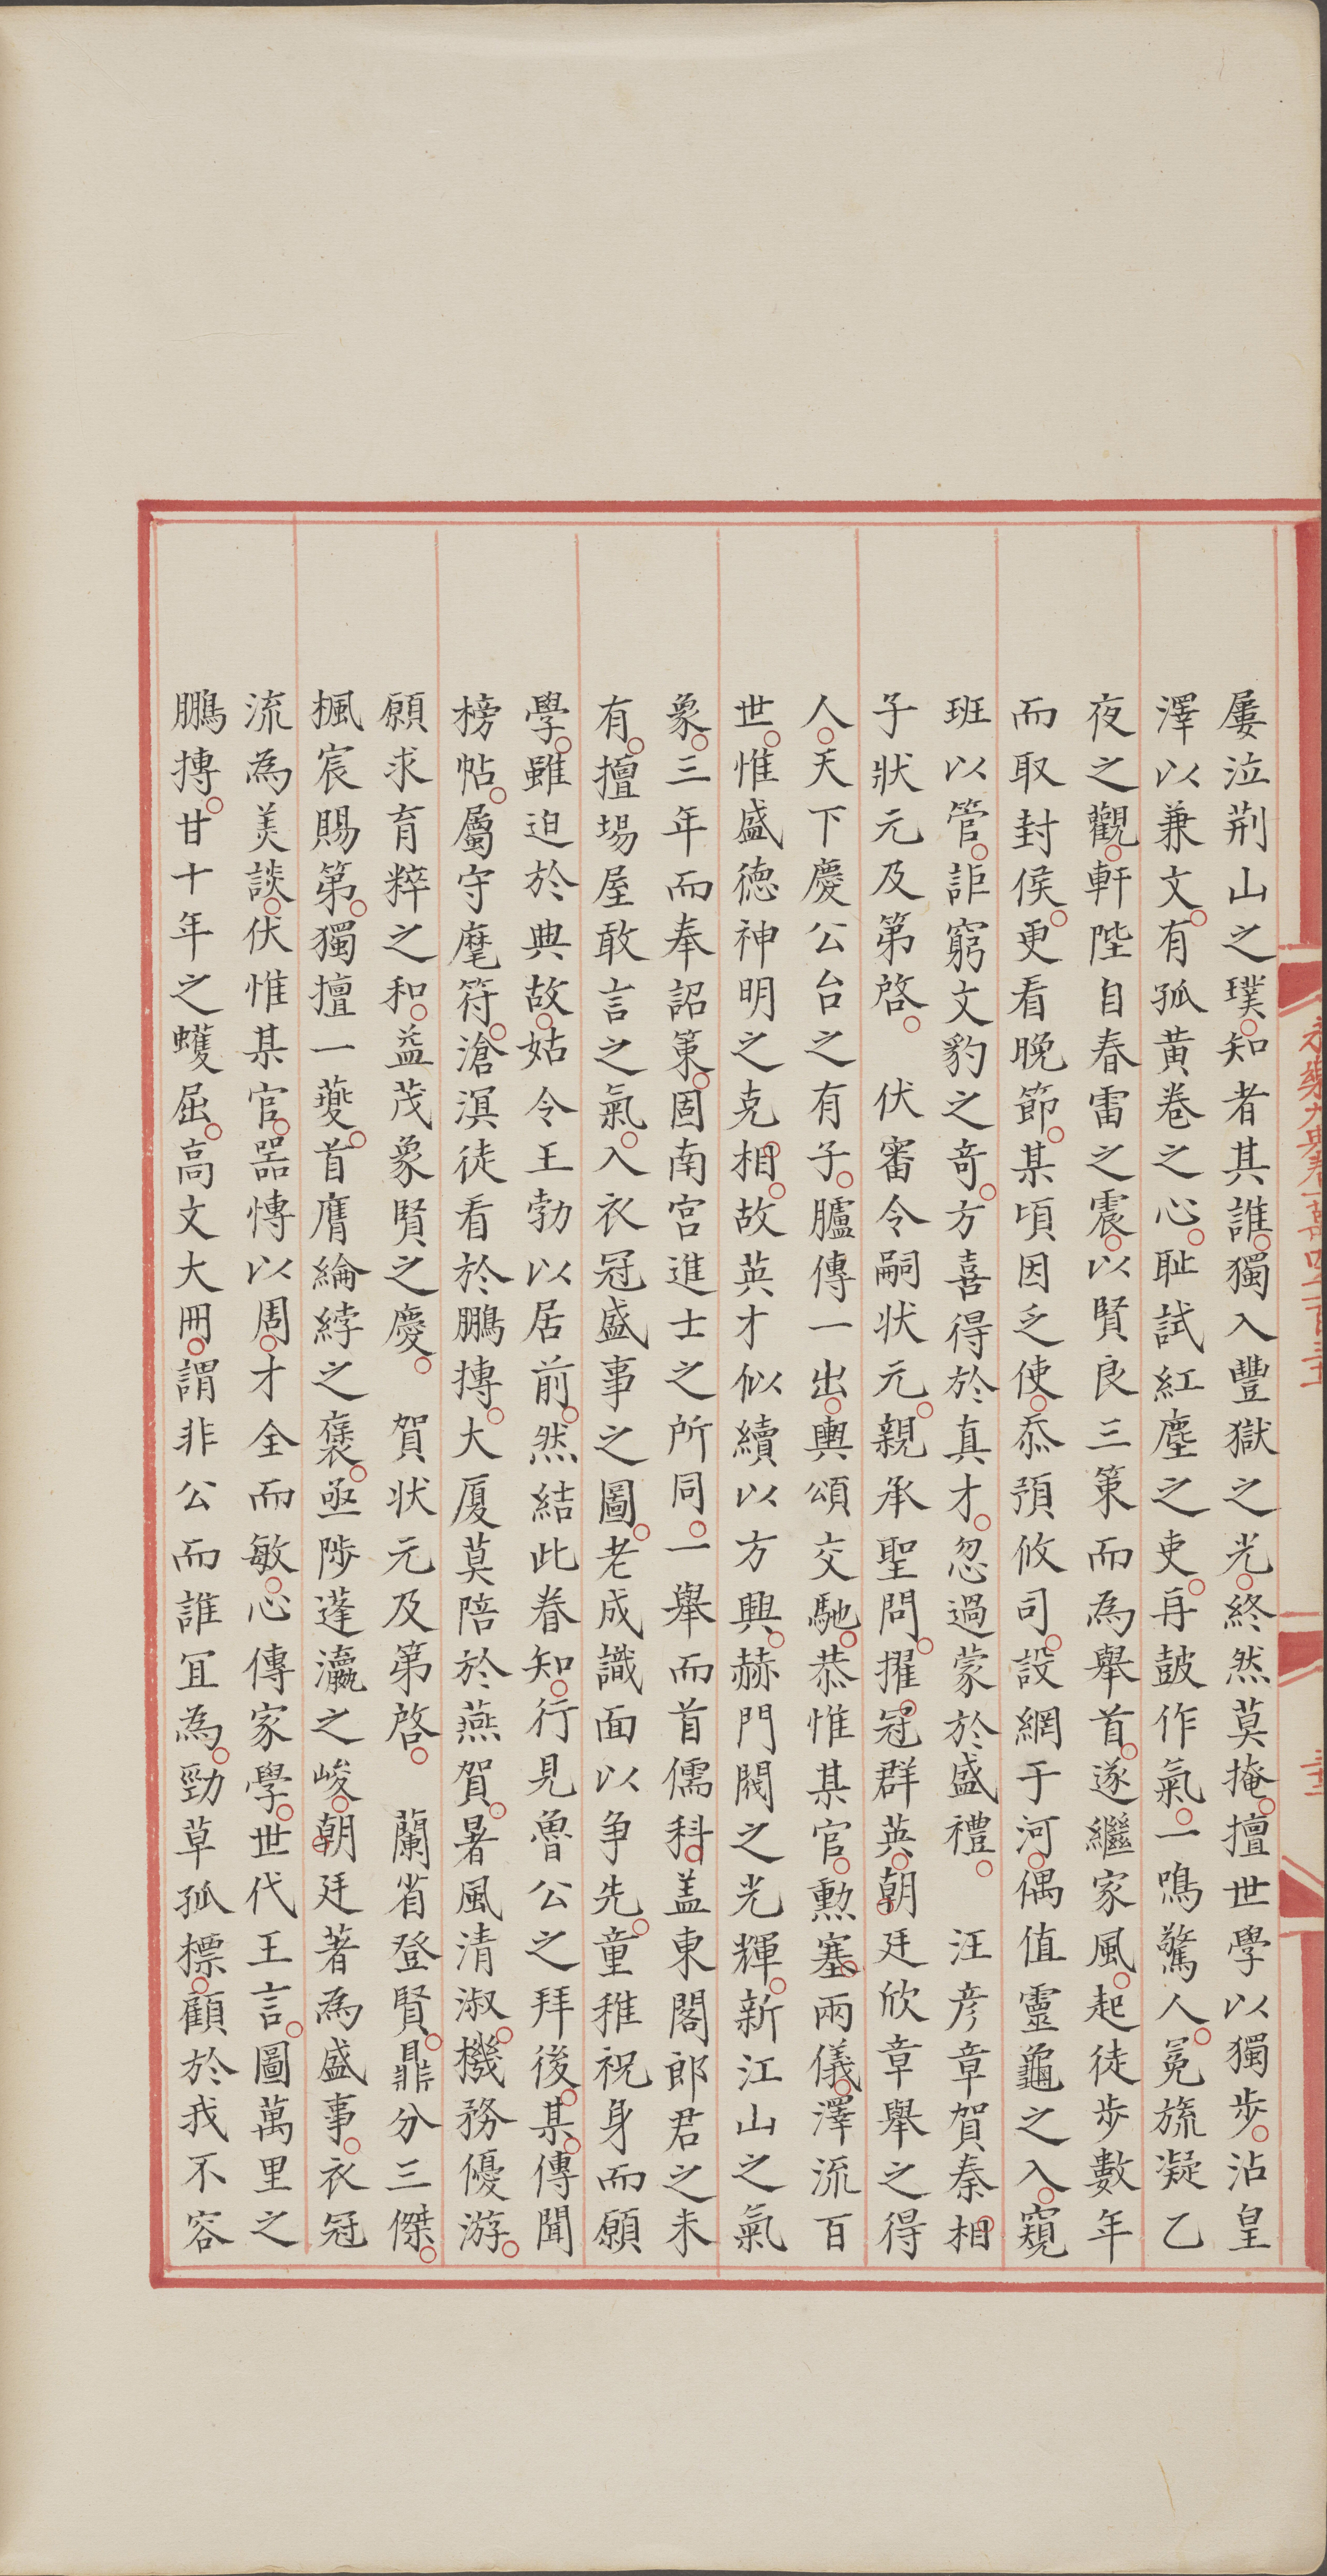 永樂大典卷一萬四千一百三十一
三十二
屢泣荆山之璞知者其誰獨入豐獄之光終然莫掩擅世學以獨步沾皇
澤以兼文有孤黄卷之心耻試紅塵之吏再鼓作氣一鳴驚人冕旒凝乙
夜之觀軒陛自春雷之震以賢良三策而為舉首遂繼家風起徒步數年
而取封侯更看晚節某頃因乏使忝預攸司設網于河偶值靈龜之入窺
班以管詎窮文豹之奇方喜得於真才忽過蒙於盛禮 汪彦章賀秦相
子狀元及第啓 伏審令嗣状元親承聖問擢冠群英朝廷欣章舉之得
人天下慶公台之有子臚傳一出輿頌交馳恭惟某官勲塞兩儀澤流百
世惟盛德神明之克相故英才似續以方興赫門閥之光輝新江山之氣
象三年而奉詔策固南宫進士之所同一舉而首儒科盖東閣郎君之未
有擅場屋敢言之氣入衣冠盛事之圖老成識面以争先童稚祝身而願
學雖迫於典故姑令王勃以居前然結此眷知行見魯公之拜後某傳聞
榜帖屬守麾符滄溟徒看於鵬摶大厦莫陪於燕賀暑風清淑機務優游
願求育粹之和益茂象賢之慶 賀状元及第啓 蘭省登賢鼎分三傑
楓宸賜第獨擅一夔首膺綸綍之褒亟陟蓬瀛之峻朝廷著為盛事衣冠
流為美談伏惟某官器博以周才全而敏心傳家學世代王言圖萬里之
鵬摶甘十年之蠖屈高文大冊謂非公而誰冝為勁草孤標顧於我不容